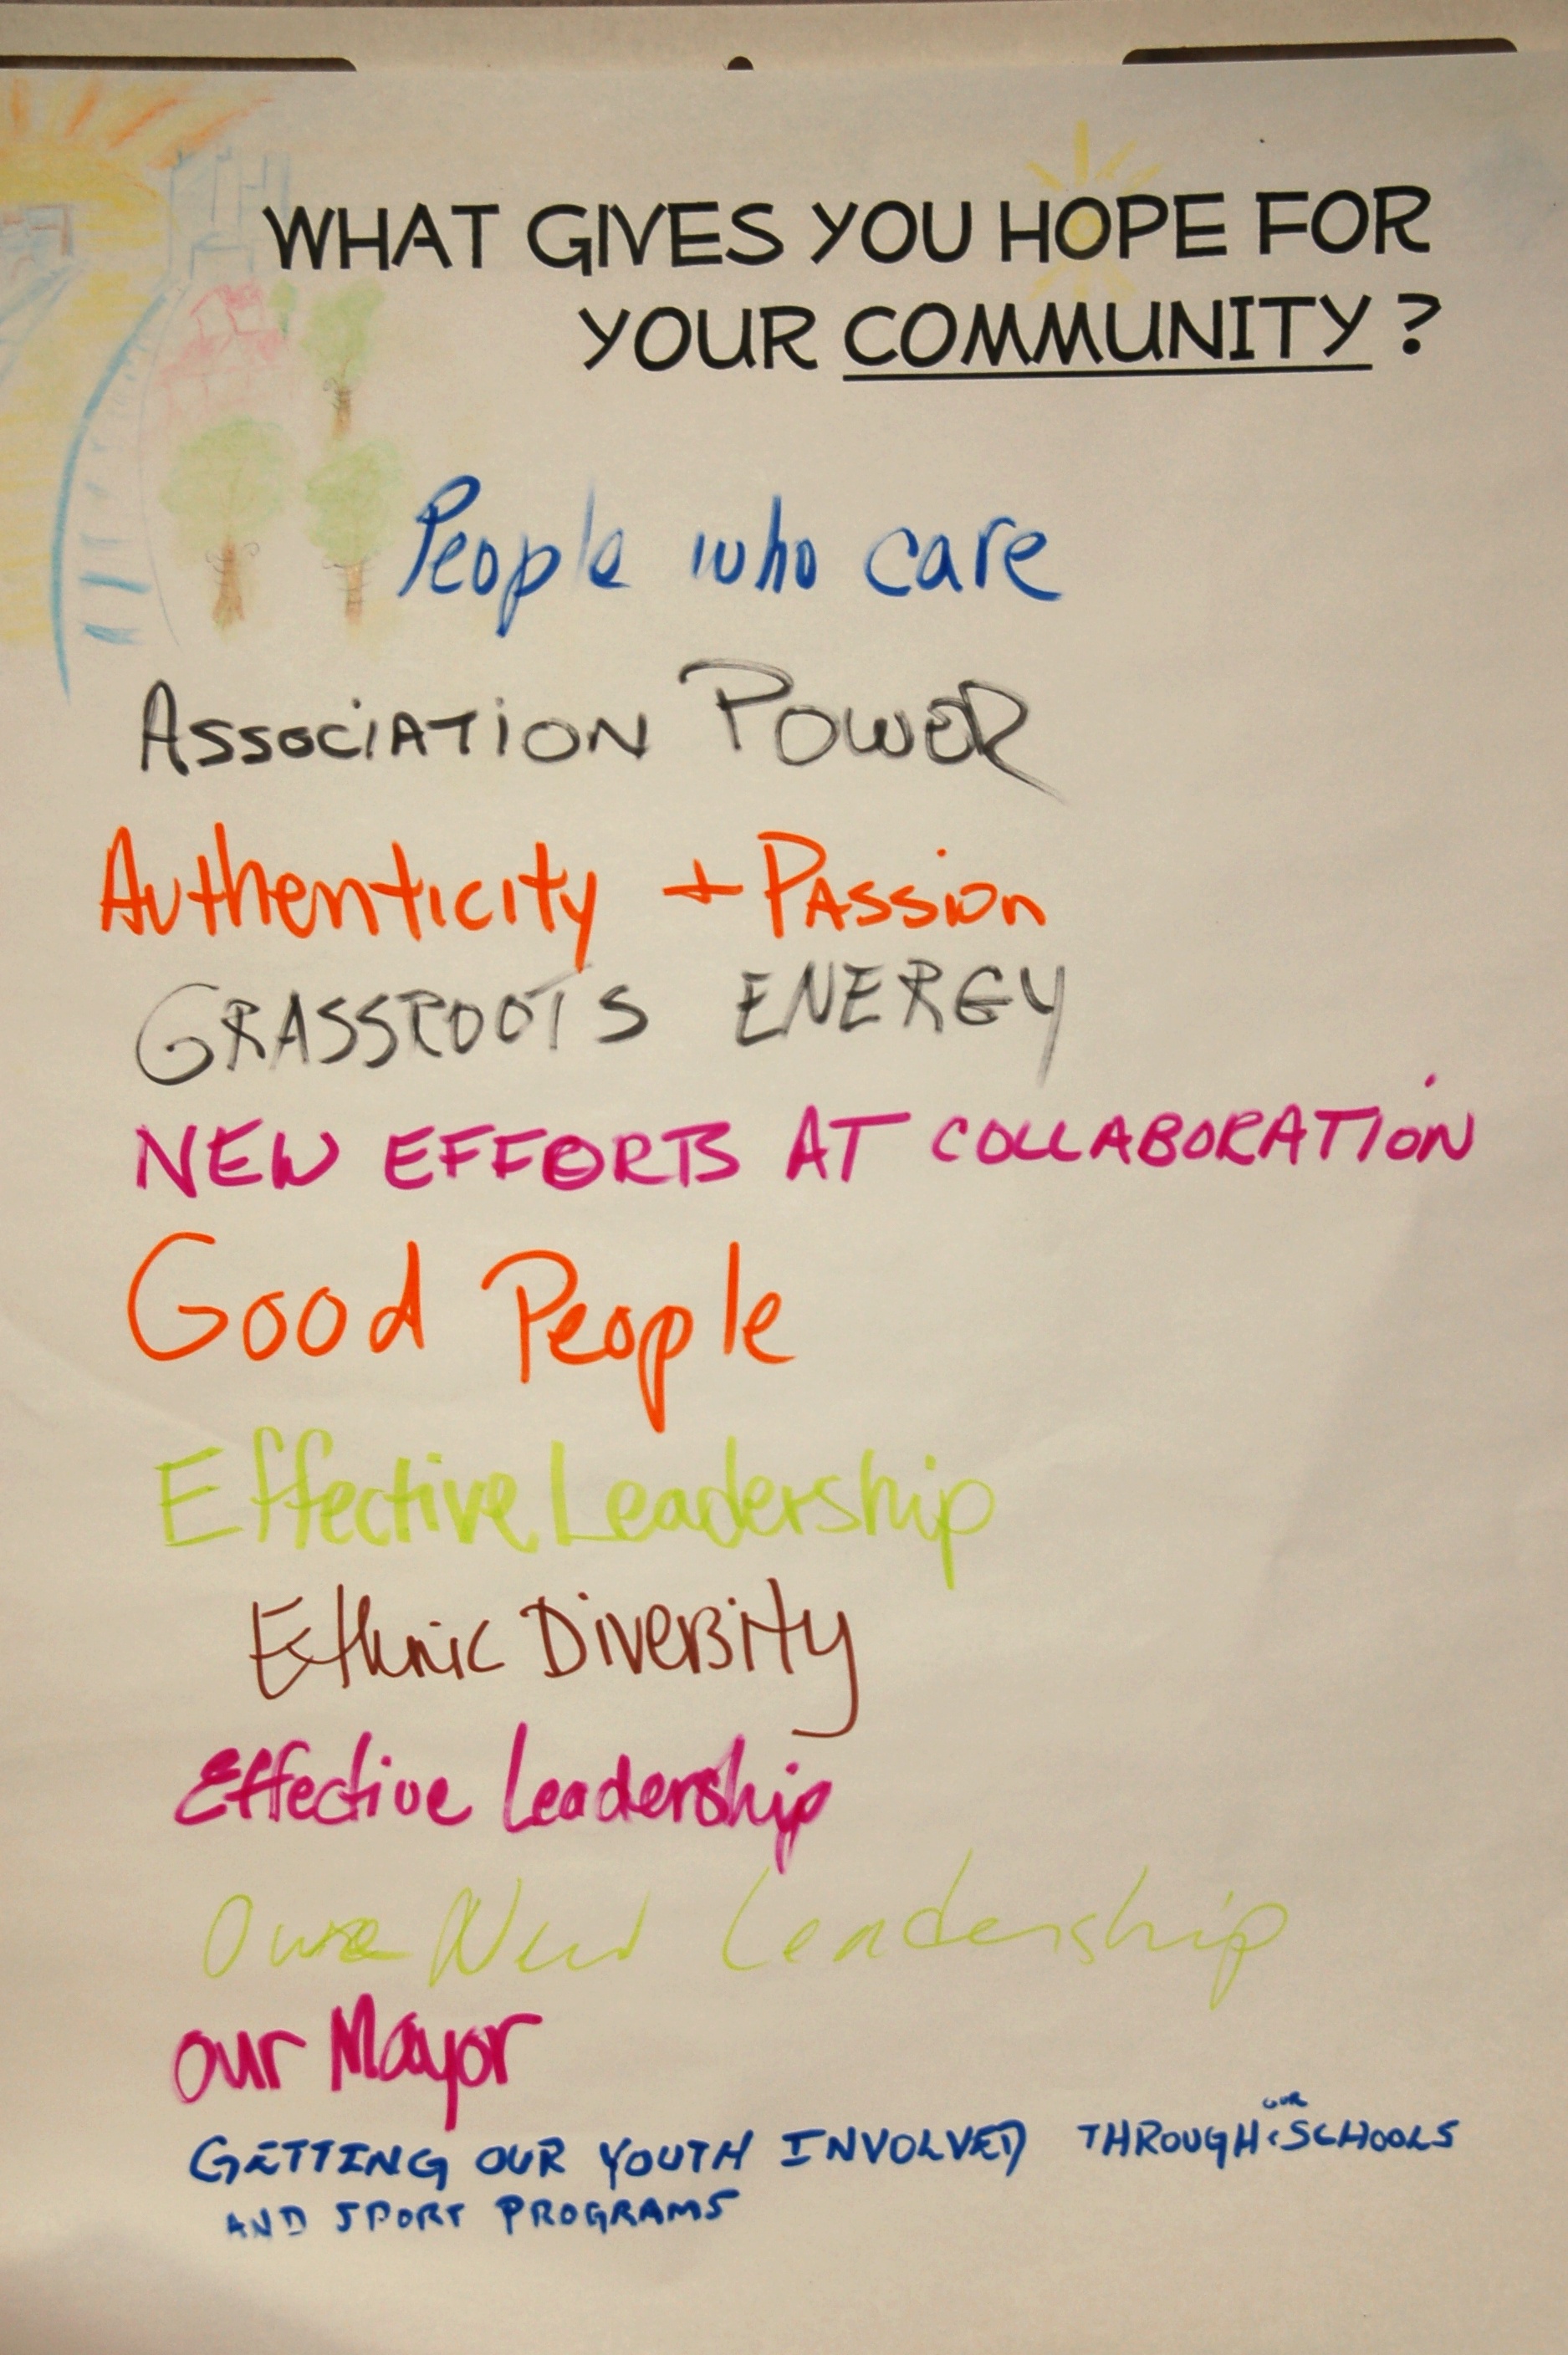 WHAT GIVES YOU HOPE FOR
YOUR COMMUNITY ?
People who care
ASSOCIATION POWER
Authenticity + PASSION
GRASSROOTS ENERGY
NEW EFFORTS AT COLLABORATION
Good People
Effective Leadership
Ethnic Diversity
Effective Leadership
New Leadership
our Mayor
GETTING OUR YOUTH INVOLVED THROUGH OUR SCHOOLS
AND SPORT PROGRAMS